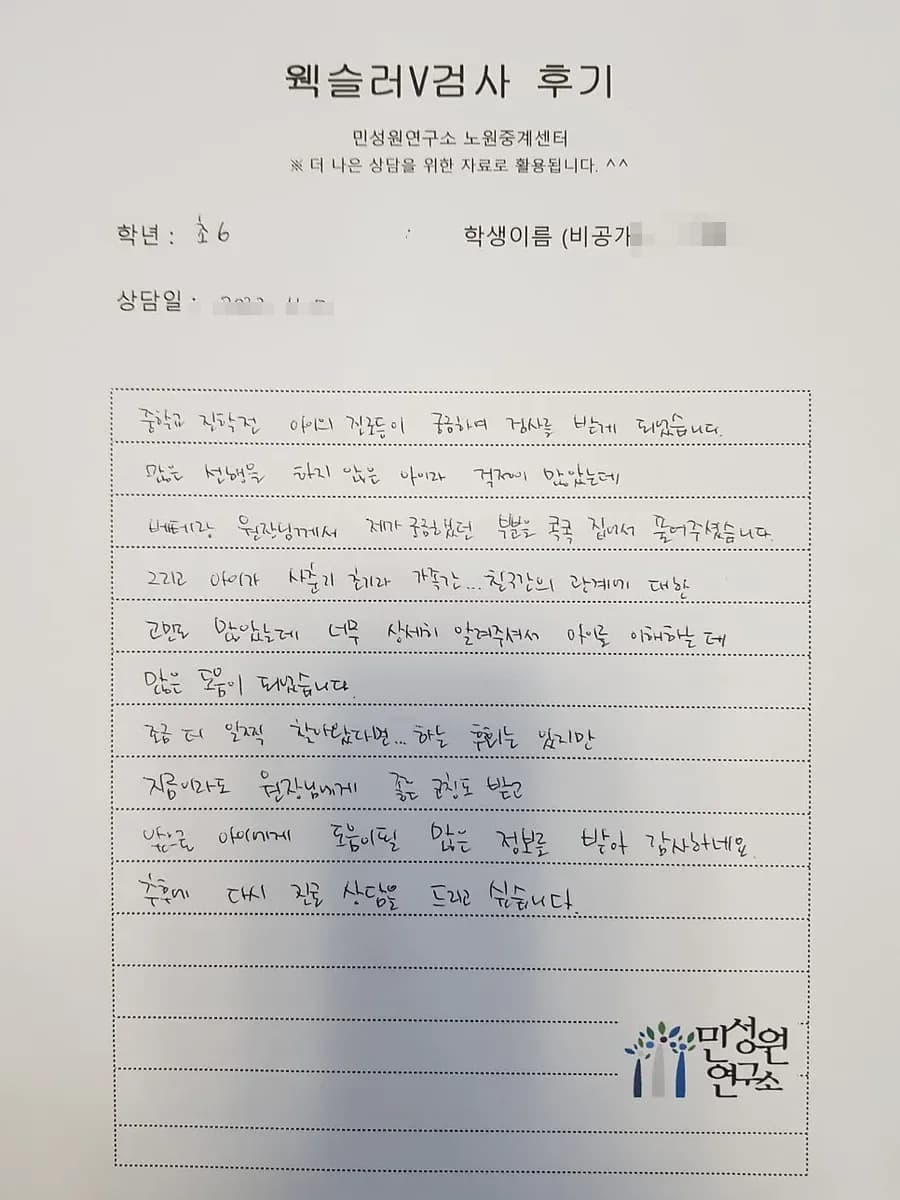 웩슬러V검사 후기
민성원연구소 노원중계센터
※ 더 나은 상담을 위한 자료로 활용됩니다. ^^
학년 : 초6
학생이름 (비공개
상담일 :
중학교 진학전 아이의 진로등이 궁금하여 검사를 받게 되었습니다.
많은 선행을 하지 않은 아이라 걱정이 많았는데
베테랑 원장님께서 제가 궁금했던 부분을 콕콕 집어서 풀어주셨습니다.
그리고 아이가 사춘기 초기라 가족간... 친구간의 관계에 대한
고민도 많았는데 너무 상세히 알려주셔서 아이를 이해하는데
많은 도움이 되었습니다.
조금 더 일찍 찾아왔다면... 하는 후회는 있지만
지금이라도 원장님에게 좋은 코칭도 받고
앞으로 아이에게 도움이될 많은 정보를 받아 감사하네요.
추후에 다시 진로 상담을 드리고 싶습니다.
민성원
연구소